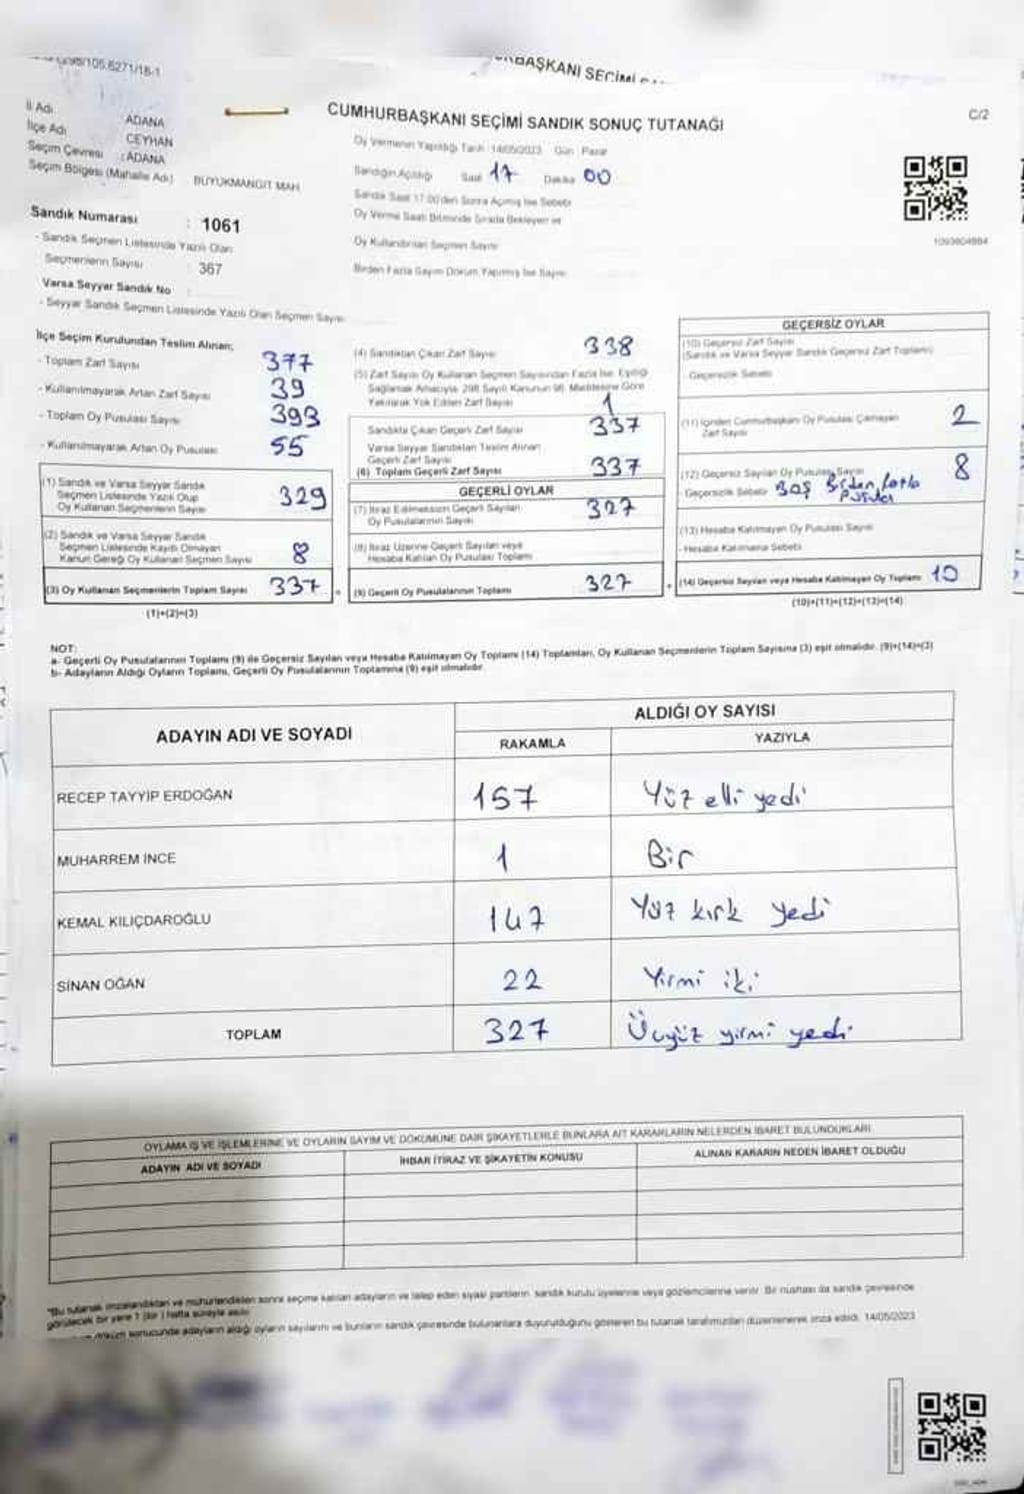 BAŞKANI SEÇİMİ
CUMHURBAŞKANI SEÇİMİ SANDIK SONUÇ TUTANAĞI
C/2
İl Adı ADANA
İlçe Adı CEYHAN
Seçim Çevresi : ADANA
Seçim Bölgesi (Mahalle Adı) BÜYÜKMANGIT MAH
Oy Vermenin Yapıldığı Tarih 14/05/2023 Gün Pazar
Sandığın Açıldığı Saat 17 Dakika 00
Sandık Saat 17.00'den Sonra Açılmış İse Sebebi
Oy Verme Saati Bitiminde Sırada Bekleyen ve
Oy Kullandırılan Seçmen Sayısı
Birden Fazla Sayım Döküm Yapılmış İse Sayısı
Sandık Numarası : 1061
- Sandık Seçmen Listesinde Yazılı Olan
Seçmenlerin Sayısı : 367
Varsa Seyyar Sandık No :
- Seyyar Sandık Seçmen Listesinde Yazılı Olan Seçmen Sayısı
İlçe Seçim Kurulundan Teslim Alınan;
- Toplam Zarf Sayısı 377
- Kullanılmayarak Artan Zarf Sayısı 39
- Toplam Oy Pusulası Sayısı 393
- Kullanılmayarak Artan Oy Pusulası 55
(1) Sandık ve Varsa Seyyar Sandık
Seçmen Listesinde Yazılı Olup
Oy Kullanan Seçmenlerin Sayısı 329
(2) Sandık ve Varsa Seyyar Sandık
Seçmen Listesinde Kayıtlı Olmayan
Kanun Gereği Oy Kullanan Seçmen Sayısı 8
(3) Oy Kullanan Seçmenlerin Toplam Sayısı 337
(1)+(2)=(3)
(4) Sandıktan Çıkan Zarf Sayısı 338
(5) Zarf Sayısı Oy Kullanan Seçmen Sayısından Fazla İse, Eşitliği
Sağlamak Amacıyla 298 Sayılı Kanunun 98. Maddesine Göre
Yakılarak Yok Edilen Zarf Sayısı 1
Sandıkta Çıkan Geçerli Zarf Sayısı 337
Varsa Seyyar Sandıktan Teslim Alınan
Geçerli Zarf Sayısı
(6) Toplam Geçerli Zarf Sayısı 337
GEÇERLİ OYLAR
(7) İtiraz Edilmeksizin Geçerli Sayılan
Oy Pusulalarının Sayısı 327
(8) İtiraz Üzerine Geçerli Sayılan veya
Hesaba Katılan Oy Pusulası Toplamı
(9) Geçerli Oy Pusulalarının Toplamı 327
GEÇERSİZ OYLAR
(10) Geçersiz Zarf Sayısı
(Sandık ve Varsa Seyyar Sandık Geçersiz Zarf Toplamı)
- Geçersizlik Sebebi
(11) İçinden Cumhurbaşkanı Oy Pusulası Çıkmayan
Zarf Sayısı 2
(12) Geçersiz Sayılan Oy Pusulası Sayısı 8
- Geçersizlik Sebebi Boş Birden fazla
Pusula
(13) Hesaba Katılmayan Oy Pusulası Sayısı
- Hesaba Katılmama Sebebi
(14) Geçersiz Sayılan veya Hesaba Katılmayan Oy Toplamı 10
(10)+(11)+(12)+(13)=(14)
NOT:
a- Geçerli Oy Pusulalarının Toplamı (9) ile Geçersiz Sayılan veya Hesaba Katılmayan Oy Toplamı (14) Toplamları, Oy Kullanan Seçmenlerin Toplam Sayısına (3) eşit olmalıdır. (9)+(14)=(3)
b- Adayların Aldığı Oyların Toplamı, Geçerli Oy Pusulalarının Toplamına (9) eşit olmalıdır.
ADAYIN ADI VE SOYADI
ALDIĞI OY SAYISI
RAKAMLA YAZIYLA
RECEP TAYYİP ERDOĞAN 157 Yüz elli yedi
MUHARREM İNCE 1 Bir
KEMAL KILIÇDAROĞLU 147 Yüz kırk yedi
SİNAN OĞAN 22 Yirmi iki
TOPLAM 327 Üçyüz yirmi yedi
OYLAMA İŞ VE İŞLEMLERİNE VE OYLARIN SAYIM VE DÖKÜMÜNE DAİR ŞİKAYETLERLE BUNLARA AİT KARARLARIN NELERDEN İBARET BULUNDUKLARI
ADAYIN ADI VE SOYADI İHBAR İTİRAZ VE ŞİKAYETİN KONUSU ALINAN KARARIN NEDEN İBARET OLDUĞU
"Bu tutanak imzalandıktan ve mühürlendikten sonra seçime katılan adayların ve talep eden siyasi partilerin sandık kurulu üyelerine veya gözlemcilerine verilir. Bir nüshası da sandık çevresinde
görülecek bir yere 1 (bir) hafta süreyle asılır.
döküm sonucunda adayların aldığı oyların sayılarını ve bunların sandık çevresinde bulunanlara duyurulduğunu gösteren bu tutanak tarafımızdan düzenlenerek imza edildi. 14/05/2023